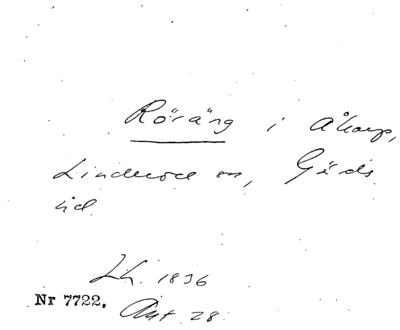 Röräng i Åkarp,
Linderöd sn, Gärds
hd.
Lh. 1836
Nr 7722. Akt 28